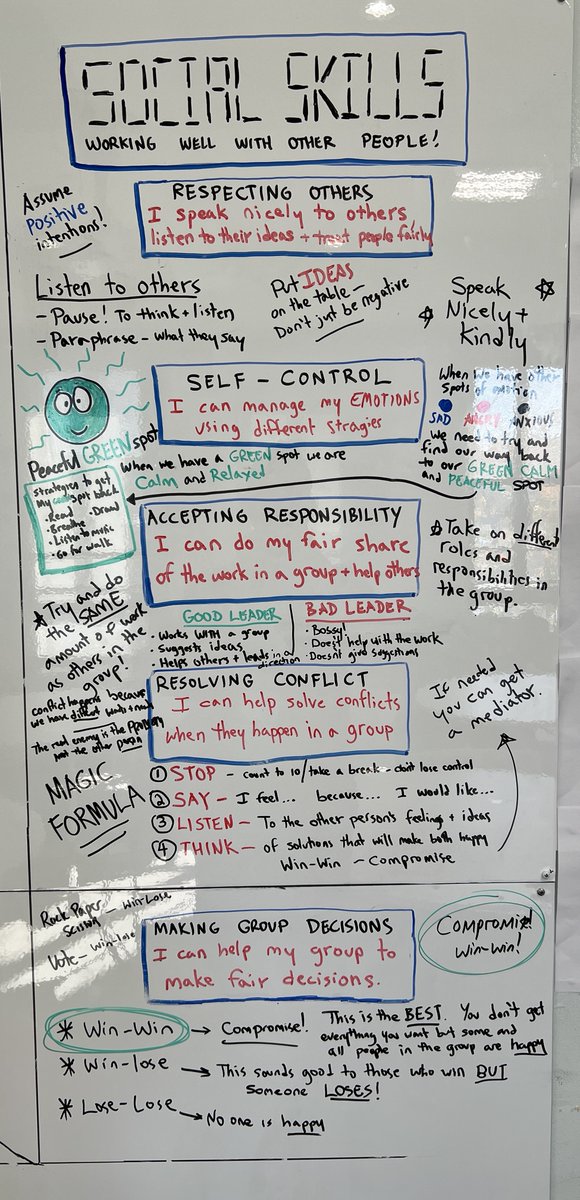 SOCIAL SKILLS
WORKING WELL WITH OTHER PEOPLE!
Assume
Positive
intentions!
RESPECTING OTHERS
I speak nicely to others,
listen to their ideas + treat people fairly
Listen to others
- Pause! To think + listen
- Paraphrase - what they say
Put IDEAS
on the table -
Don't just be negative
Speak
Nicely +
Kindly
SELF - CONTROL
I can manage my EMOTIONS
using different stragies
When we have other
spots of emotion
SAD ANGRY ANXIOUS
we need to try and
find our way back
to our GREEN CALM
and PEACEFUL SPOT
Peaceful GREEN spot
When we have a GREEN spot we are
Calm and Relaxed
Strategies to get
my spot back
• Read • Draw
• Breathe
• Listen to music
• Go for walk
ACCEPTING RESPONSIBILITY
I can do my fair share
of the work in a group + help others
Take on different
roles and
responsibilities in
the group.
Try and do
the SAME
amount of work
as others in the
group!
GOOD LEADER
• Works WITH a group
• Suggests ideas
• Helps others + leads in a
direction
BAD LEADER
• Bossy!
• Doesn't help with the work
• Doesn't give suggestions
RESOLVING CONFLICT
I can help solve conflicts
when they happen in a group
conflict happens because
we have different wants + needs
The real enemy is the PROBLEM
not the other person
If needed
you can get
a mediator.
MAGIC
FORMULA
1 STOP - count to 10/take a break - don't lose control
2 SAY - I feel... because... I would like...
3 LISTEN - To the other person's feelings + ideas
4 THINK - of solutions that will make both happy
Win-Win - Compromise
Rock Paper
Scissors - Win-Lose
Vote - Win-lose
MAKING GROUP DECISIONS
I can help my group to
make fair decisions.
Compromise!
Win-Win!
* Win-Win → Compromise! This is the BEST. You don't get
everything you want but some and
all people in the group are happy
* Win-lose → This sounds good to those who win BUT
Someone LOSES!
* Lose-Lose → No one is happy